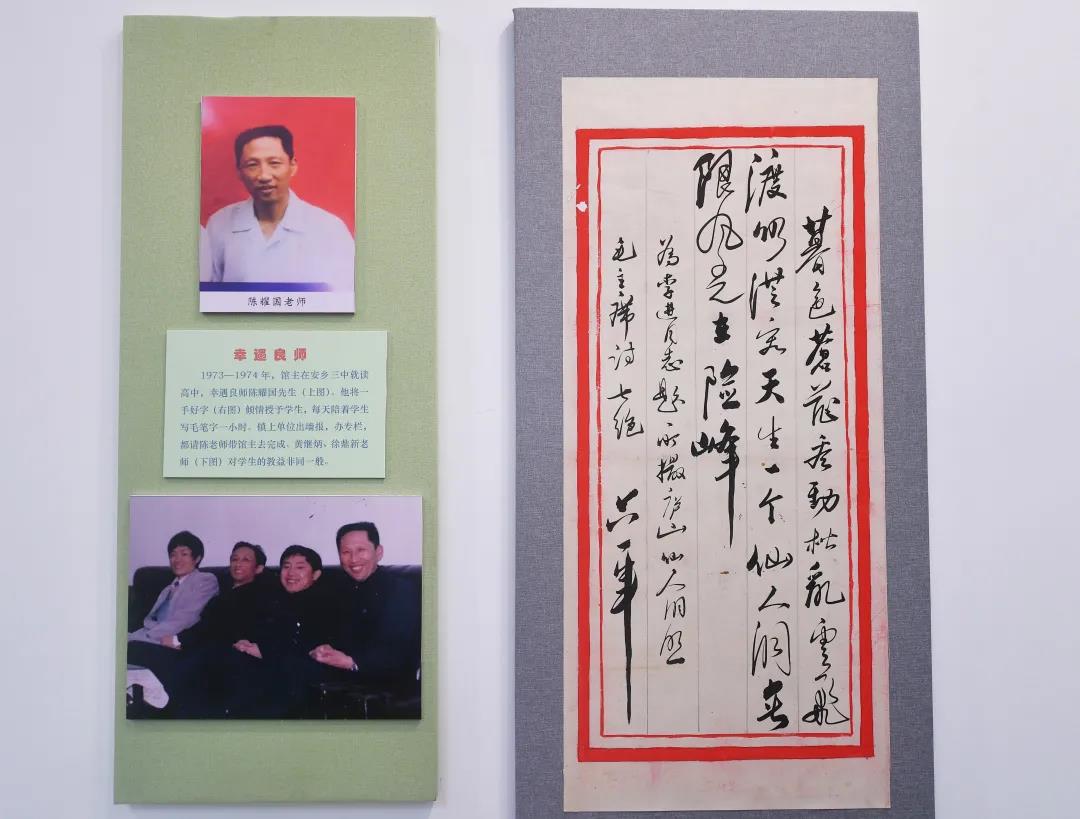 陈耀国老师
幸遇良师
1973—1974年，馆主在安乡三中就读
高中，幸遇良师陈耀国先生（上图）。他将一
手好字（右图）倾情授予学生，每天陪着学生
写毛笔字一小时。镇上单位出墙报，办专栏，
都请陈老师带馆主去完成。黄继炳、徐鼎新老
师（下图）对学生的教益非同一般。
暮色蒼茫看勁松亂雲飛
渡仍從容天生一个仙人洞無
限风光在險峰
為李进同志題所攝庐山仙人洞照
毛主席诗七绝 六一年